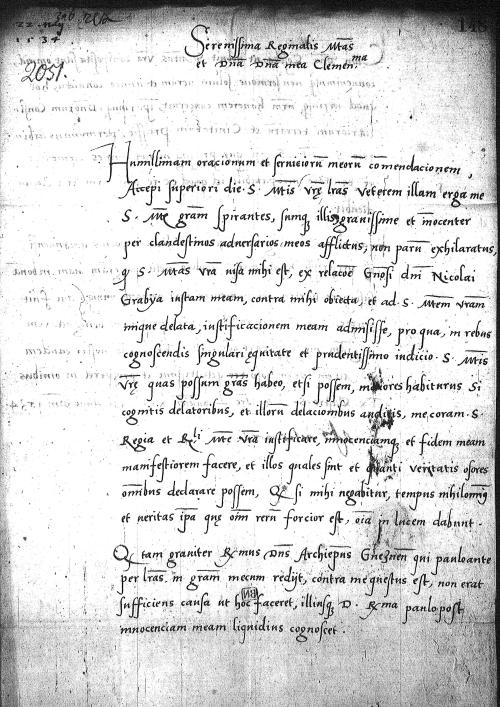 22 July
1534
2051.
148
Serenissima Reginalis Mtas
et Dna Dna mea Clemen.ma
Humillimam oracionum et serviciorũ meorũ cõmendacionem,
Accepi superiori die S. Mtis vrę lras veterem illam erga me
S. Mtis gram spirantes, sumq illis gravissime et inocenter
per clandestinos adversarios meos afflictus, non parũ exhilaratus,
q S. Mtas vra visa mihi est, ex relacoe Gnosi dni Nicolai
Grabya iustam meam, contra mihi obiecta, et ad S. Mtem vram
inique delata, iustificacionem meam admisisse, pro qua, in rebus
cognoscendis singulari equitate et prudentissimo iudicio S. Mtis
vrę quas possum gras habeo, etsi possem, maiores habiturus Si
cognitis delatoribus, et illorũ delacionibus auditis, me, coram S.
Regia et Rli Mte vra iustificare, innocenciamq et fidem meam
manifestiorem facere, et illos quales sint et quanti veritatis osores
omibus declarare possem, Q si mihi negabitur, tempus nihilominq
et veritas ipa quę oim rerũ forcior est, oia in lucem dabunt.
Q tam graviter Rmus Dns Archiepus Gneznen qui paulo ante
per lras in gram mecum redijt, contra me questus est, non erat
sufficiens causa ut hoc faceret, illiusq D. Rma paulo post
innocenciam meam liquidius cognoscet.